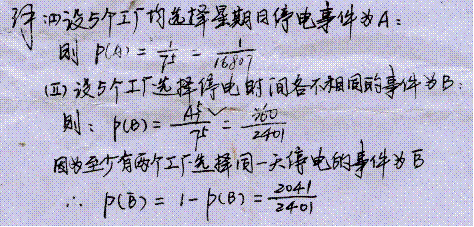 解 (Ⅰ) 设5个工厂均选择星期日停电事件为A:
则 P(A) = 1/7^5 = 1/16807
(Ⅱ) 设5个工厂选择停电时间各不相同的事件为B:
则: P(B) = A_7^5/7^5 = 360/2401
因为至少有两个工厂选择同一天停电的事件为B̅
∴ P(B̅) = 1-P(B) = 2041/2401